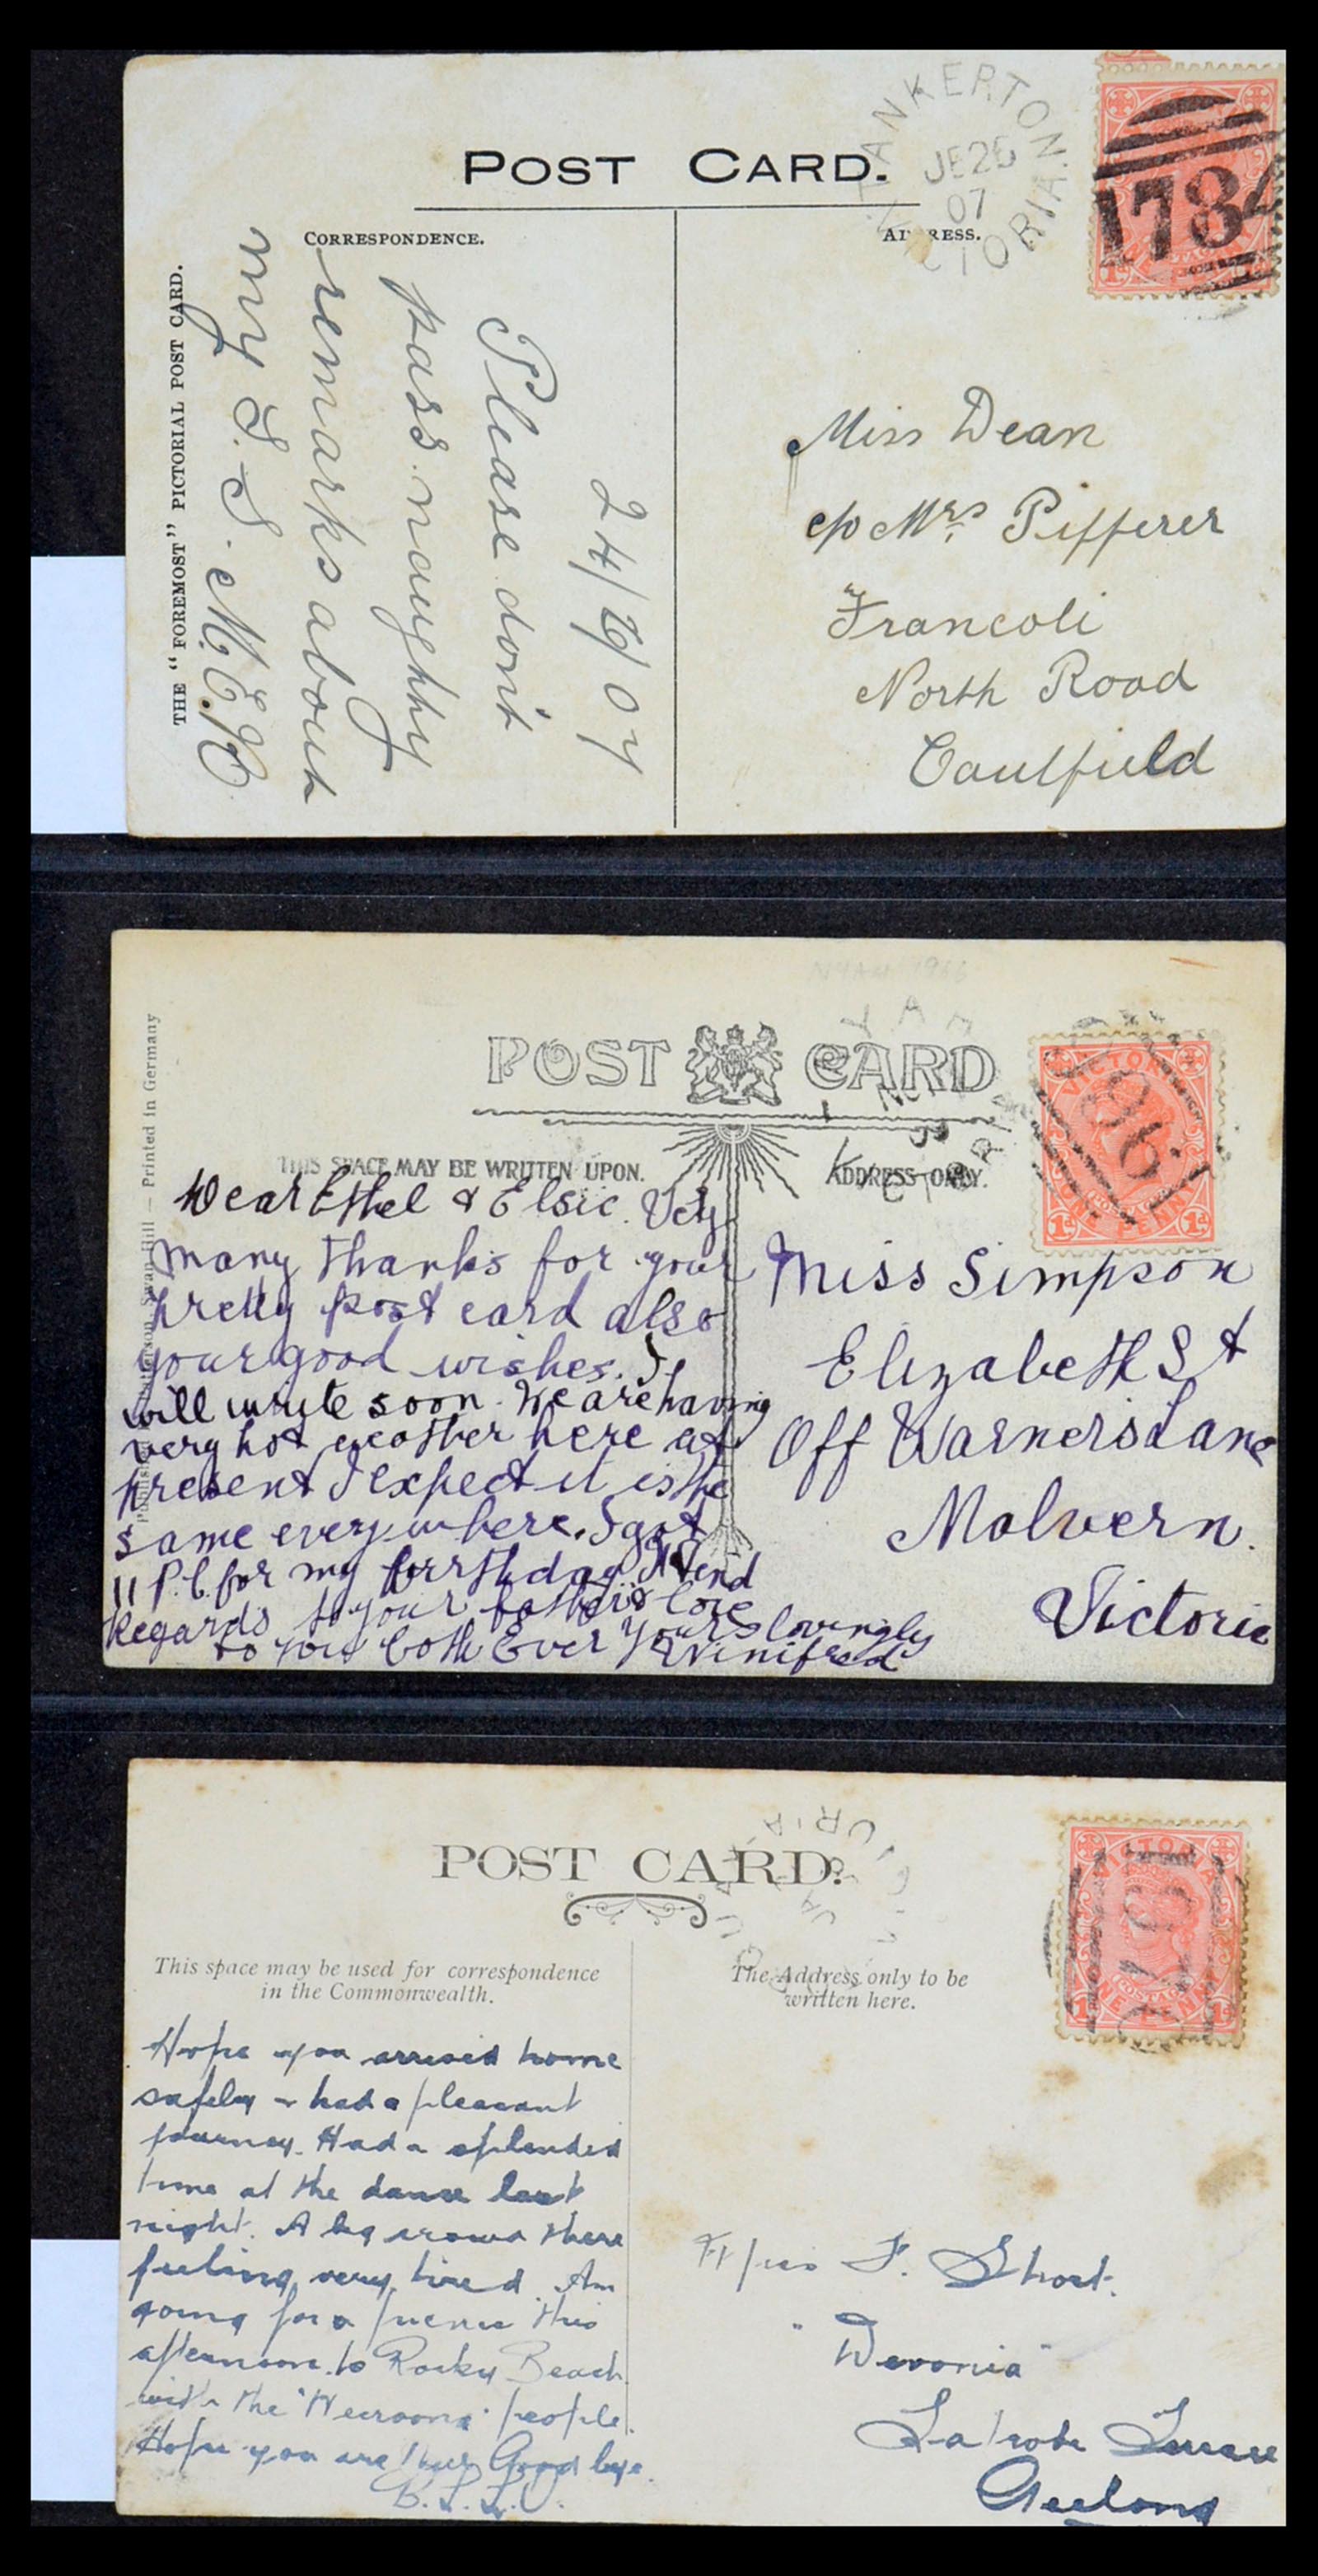 POST CARD.
CORRESPONDENCE.
ADDRESS.
THE "FOREMOST" PICTORIAL POST CARD.
TANKERTON
JE 25
07
VICTORIA
1784
24/6/07
Please don't
pass naughty
remarks about
my S. S. M.E.R
Miss Dean
c/o Mrs Pifferer
Francoli
North Road
Caulfield
NYAH 1966
POST CARD
THIS SPACE MAY BE WRITTEN UPON.
ADDRESS ONLY.
Swan Hill — Printed in Germany
VICTORIA
1d ONE PENNY 1d
Dear Ethel & Elsie. Very
many thanks for your
pretty post card also
your good wishes. I
will write soon. We are having
very hot weather here at
present I expect it is the
same everywhere. I got
11 P.C. for my birthday. Kind
Regards to your father & love
to you both Ever Yours lovingly
Winifred
Miss Simpson
Elizabeth St
Off Warners Lane
Malvern.
Victoria
POST CARD.
This space may be used for correspondence
in the Commonwealth.
The Address only to be
written here.
VICTORIA
ONE PENNY
Hope you arrived home
safely & had a pleasant
journey. Had a splended
time at the dance last
night. A big crowd there
feeling very tired. Am
going for a picnic this
afternoon to Rocky Beach
with the "Weeroona" people.
Hope you are Good bye.
Miss F. Short.
"Devonia"
Latrobe Terrace
Geelong